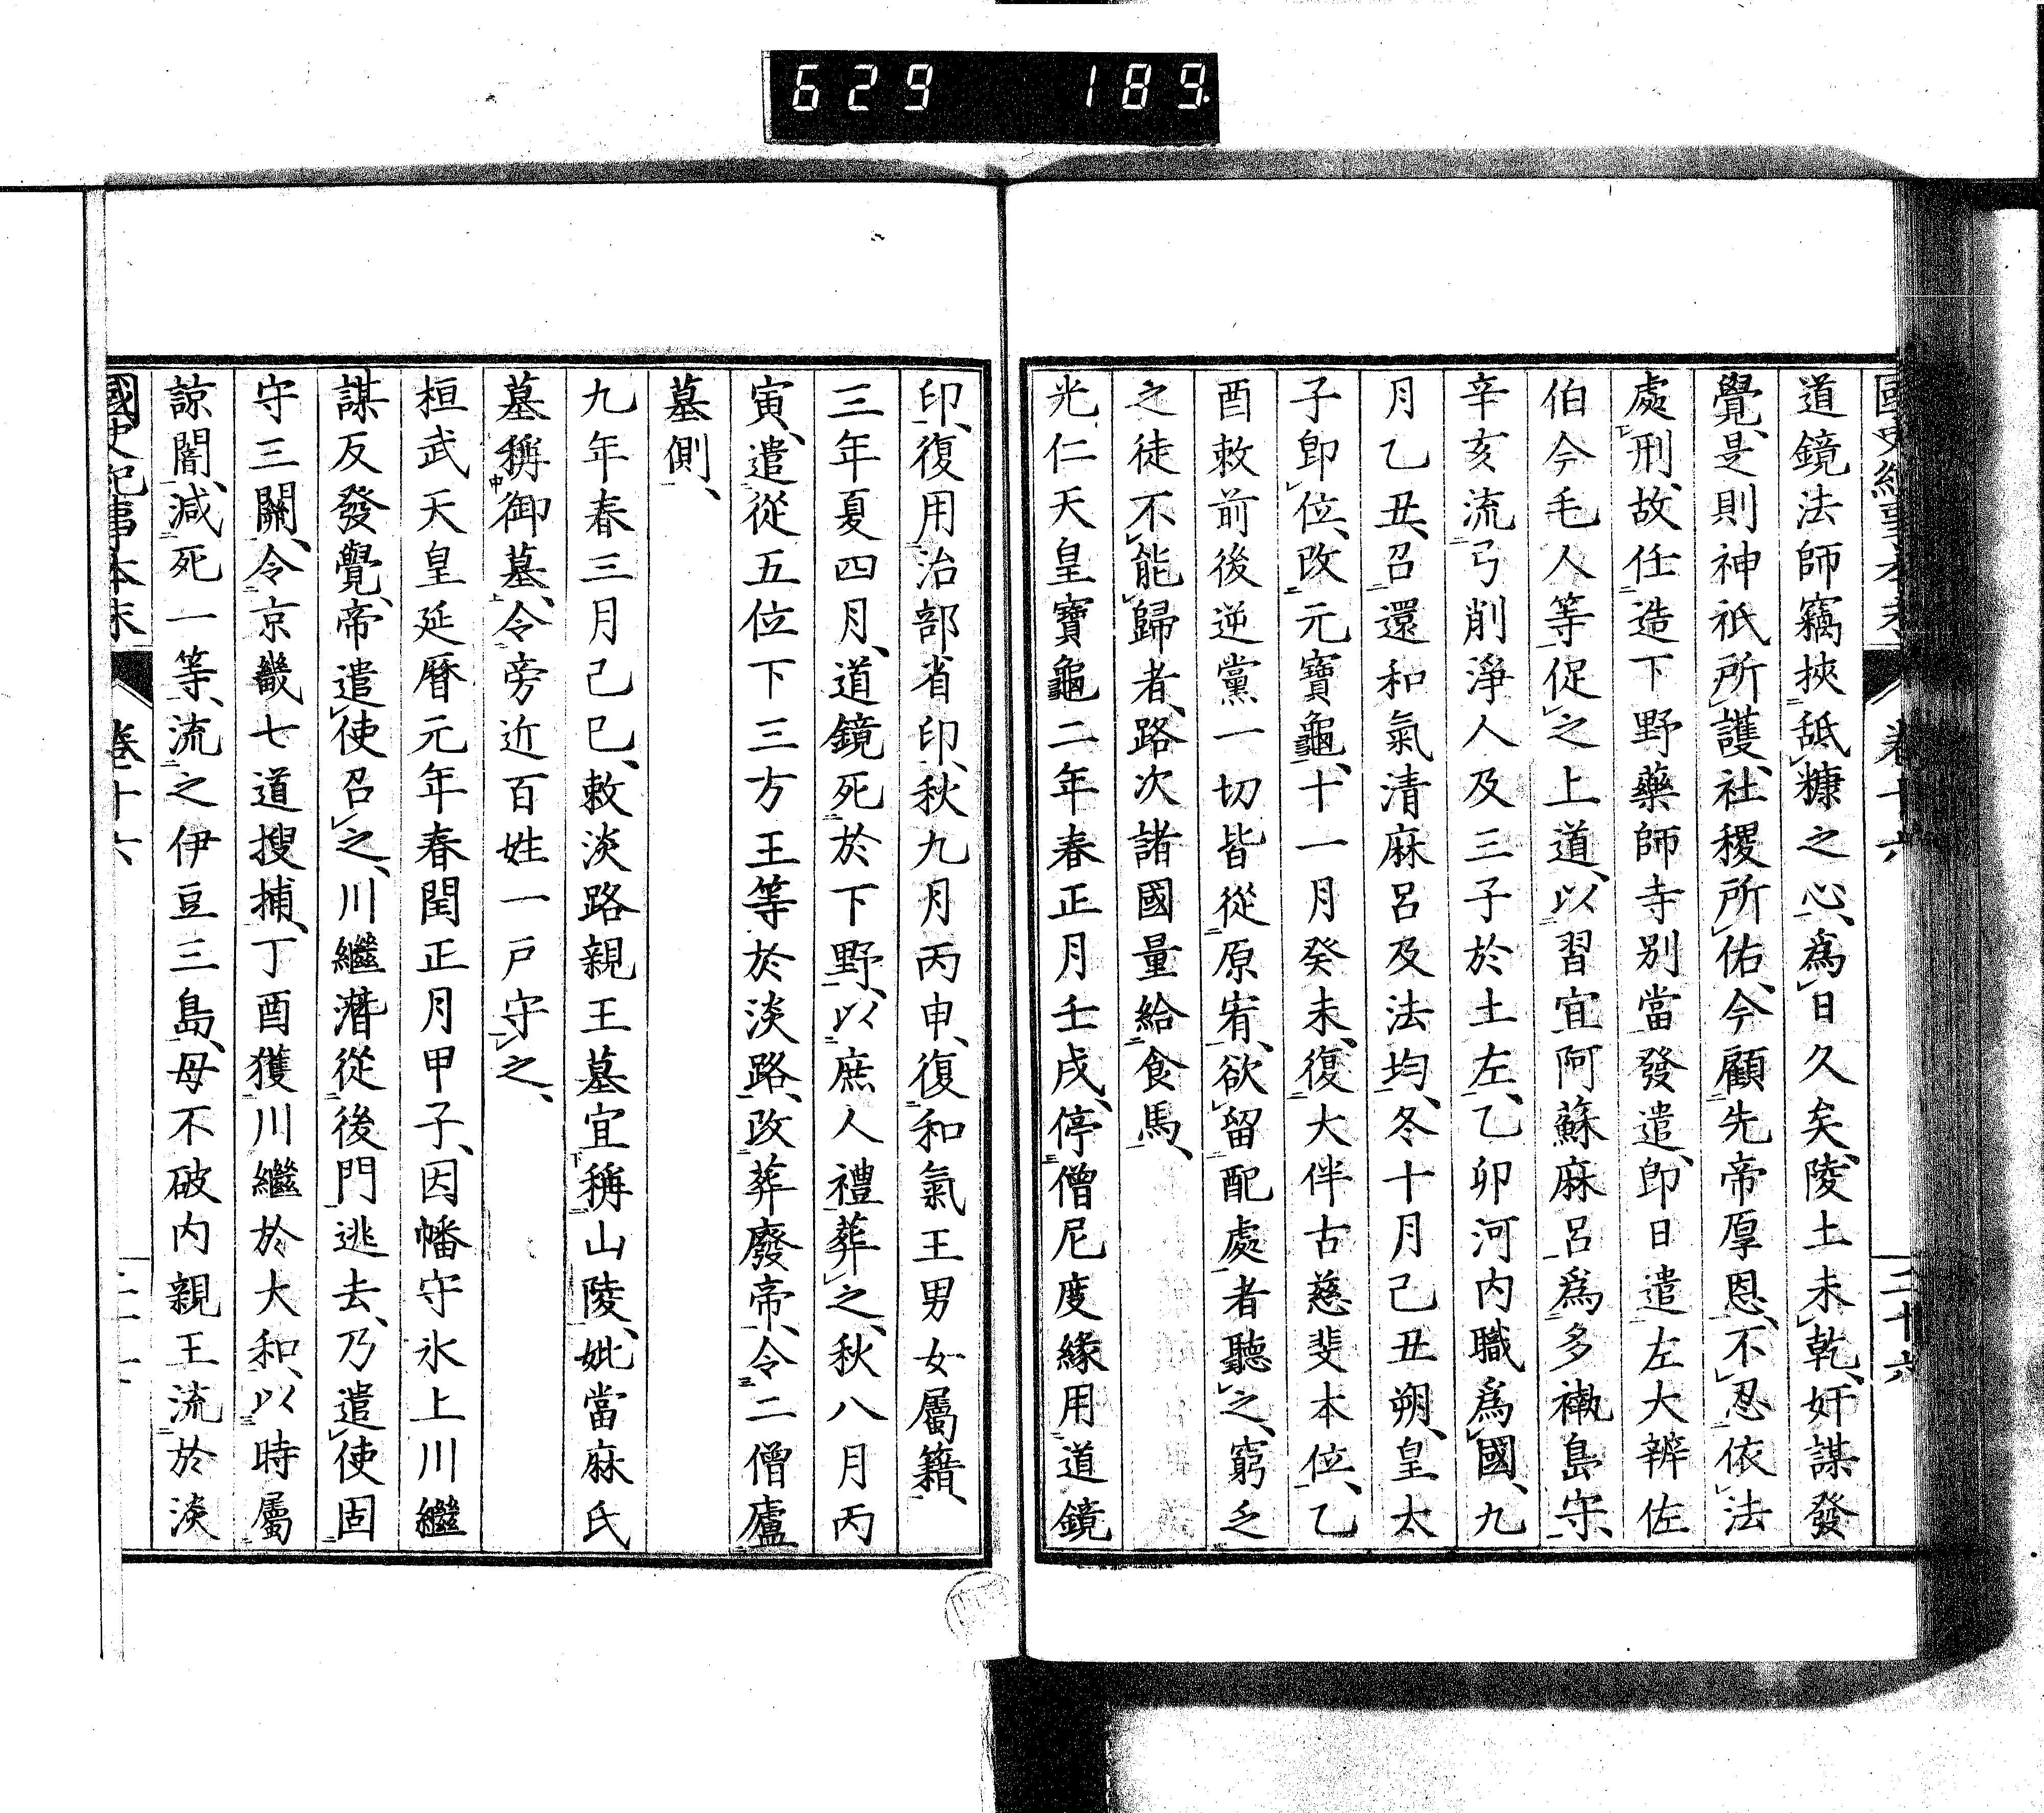 629 189
道鏡法師竊挾舐糠之心、爲日久矣、陵土未乾、奸謀發
覺、是則神祇所護、社稷所佑、今顧先帝厚恩、不忍依法
處刑、故任造下野藥師寺別當發遣、即日遣左大辨佐
伯今毛人等促之上道、以習宜阿蘇麻呂爲多褹島守、
辛亥流弓削淨人及三子於土左、乙卯河內職爲國、九
月乙丑、召還和氣清麻呂及法均、冬十月己丑朔、皇太
子即位、改元寶龜、十一月癸未、復大伴古慈斐本位、乙
酉敕前後逆黨一切皆從原宥、欲留配處者聽之、窮乏
之徒不能歸者、路次諸國量給食馬、
光仁天皇寶龜二年春正月壬戌、停僧尼度緣用道鏡
印、復用治部省印、秋九月丙申、復和氣王男女屬籍、
三年夏四月、道鏡死於下野、以庶人禮葬之、秋八月丙
寅、遣從五位下三方王等於淡路、改葬廢帝、令二僧廬
墓側、
九年春三月己巳、敕淡路親王墓宜稱山陵、妣當麻氏
墓稱御墓、令旁近百姓一戶守之、
桓武天皇延曆元年春閏正月甲子、因幡守氷上川繼
謀反發覺、帝遣使召之、川繼潛從後門逃去、乃遣使固
守三關、令京畿七道搜捕、丁酉獲川繼於大和、以時屬
諒闇、減死一等、流之伊豆三島、母不破内親王流於淡
國史紀事本末 卷十六